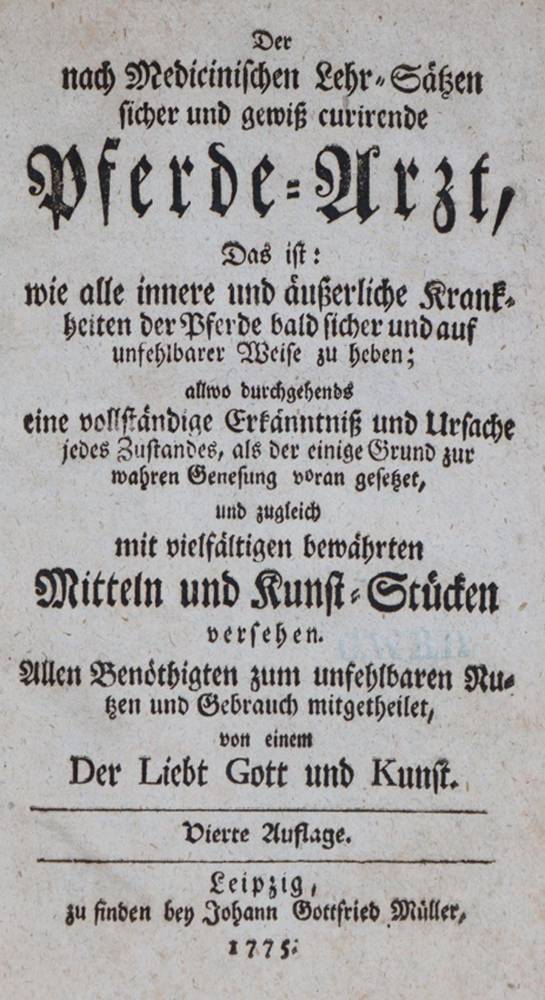 Der
nach Medicinischen Lehr-Sätzen
sicher und gewiß curirende
Pferde-Arzt,
Das ist:
wie alle innere und äußerliche Krank-
heiten der Pferde bald sicher und auf
unfehlbarer Weise zu heben;
allwo durchgehends
eine vollständige Erkänntniß und Ursache
jedes Zustandes, als der einige Grund zur
wahren Genesung voran gesetzet,
und zugleich
mit vielfältigen bewährten
Mitteln und Kunst-Stücken
versehen.
Allen Benöthigten zum unfehlbaren Nu-
tzen und Gebrauch mitgetheilet,
von einem
Der Liebt Gott und Kunst.
Vierte Auflage.
Leipzig,
zu finden bey Johann Gottfried Müller,
1775.